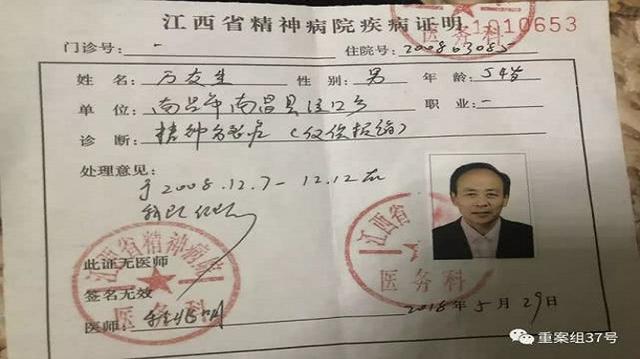 江西省精神病院疾病证明
1010653
门诊号: - 住院号: 2008063085
姓名: 万友生 性别: 男 年龄: 54岁
单位: 南昌市南昌县泾口乡 职业: 一
诊断: 精神分裂症
处理意见:
于2008.12.7-12.12在
江西省
医务科
江西省精神病院
医务科
此证无医师
签名无效
医师:
2018年5月29日
重案组37号